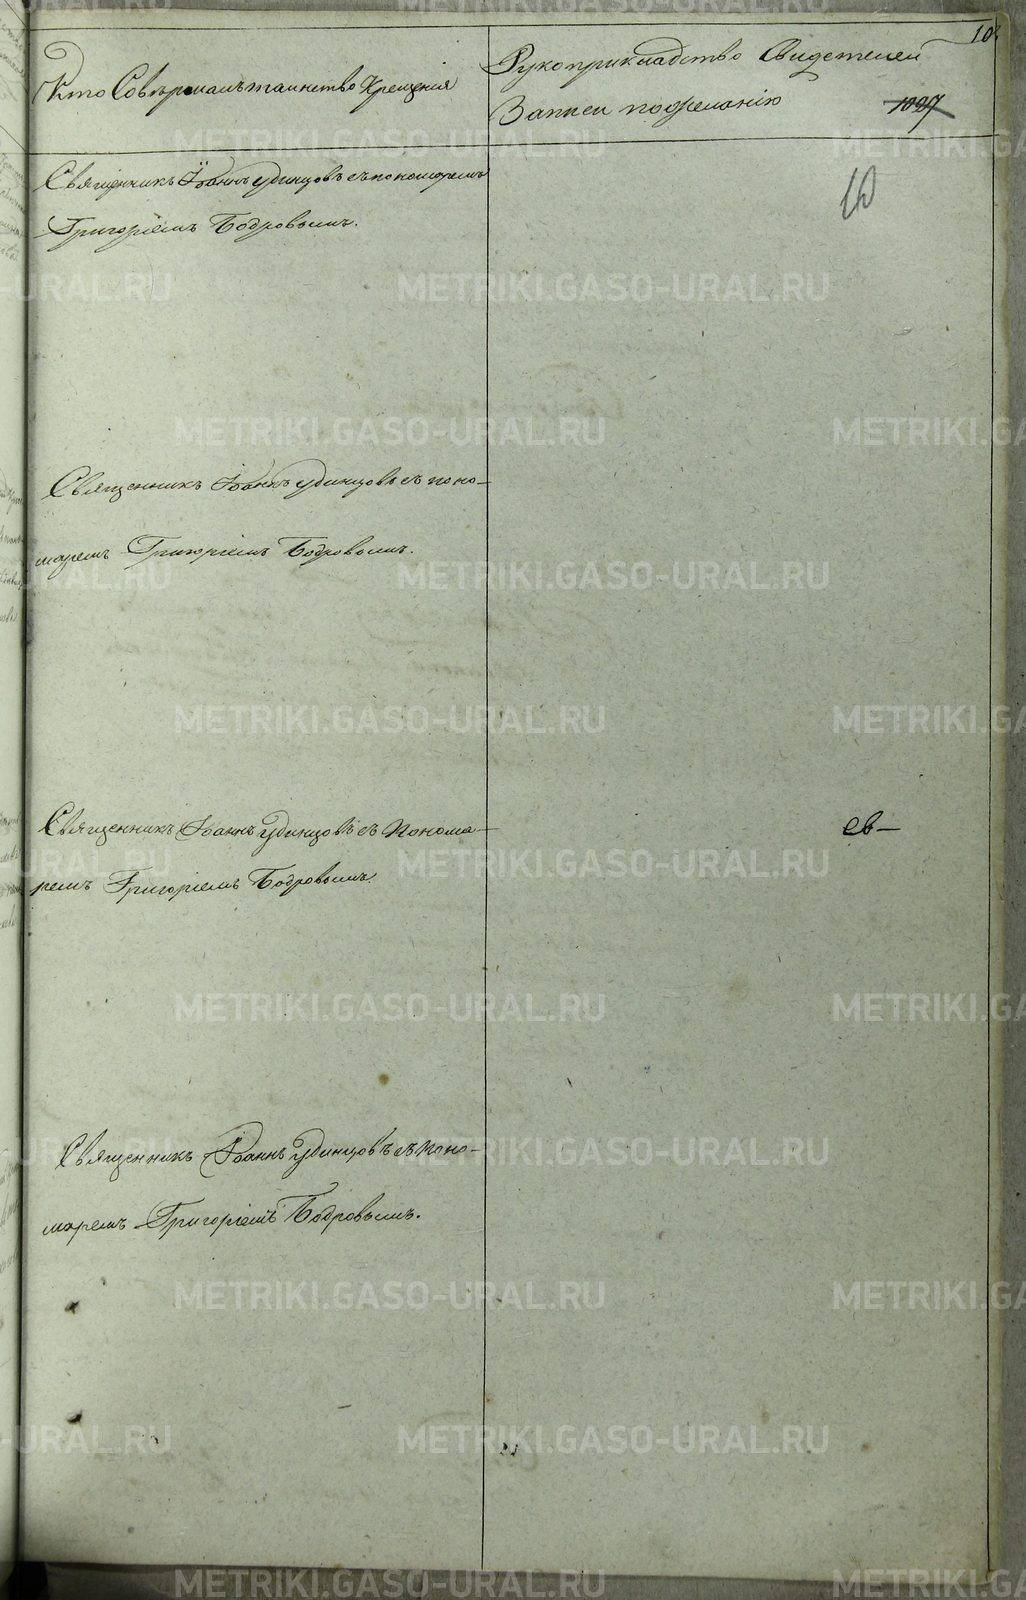 10
Кто Совершалъ таинство Крещенія
Рукоприкладство Свидетелей
Записи пожеланію
1027
10
Священникъ Іоаннъ Удинцовъ съ пономаремъ
Григоріемъ Бодровымъ.
Священникъ Іоаннъ Удинцовъ съ поно-
маремъ Григоріемъ Бодровымъ.
Священникъ Іоаннъ Удинцовъ съ Понома-
ремъ Григоріемъ Бодровымъ.
ев-
Священникъ Іоаннъ Удинцовъ съ поно-
маремъ Григоріемъ Бодровымъ.
METRIKI.GASO-URAL.RU